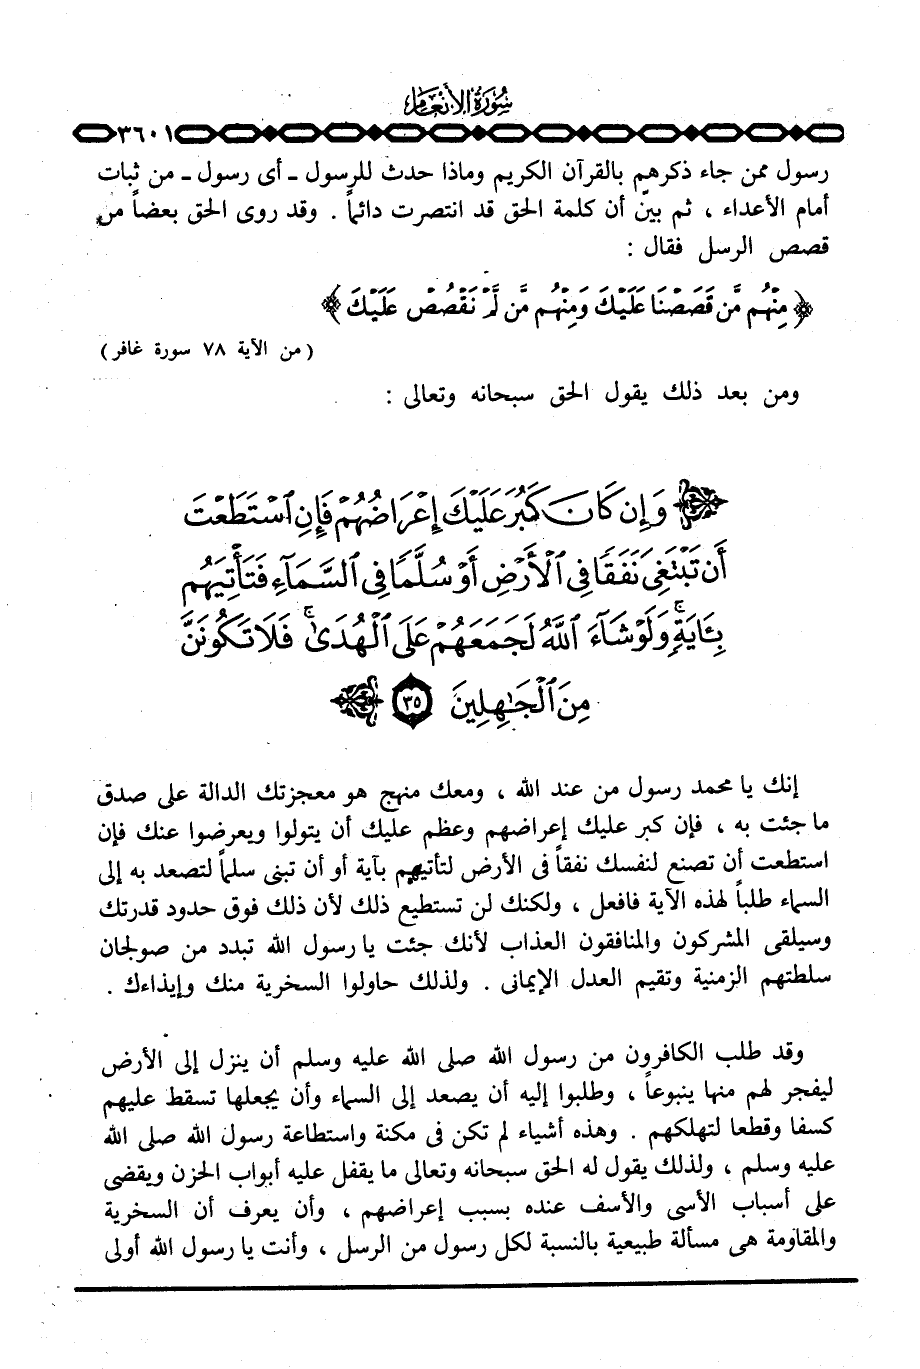 سُورَةُ الأَنْعَامِ
٣٦٠١
رسول ممن جاء ذكرهم بالقرآن الكريم وماذا حدث للرسول ـ أى رسول ـ من ثبات
أمام الأعداء ، ثم بينّ أن كلمة الحق قد انتصرت دائماً . وقد روى الحق بعضاً من
قصص الرسل فقال :
﴿ مِنْهُم مَّن قَصَصْنَا عَلَيْكَ وَمِنْهُم مَّن لَّمْ نَقْصُصْ عَلَيْكَ ﴾
( من الآية ٧٨ سورة غافر )
ومن بعد ذلك يقول الحق سبحانه وتعالى :
وَإِن كَانَ كَبُرَ عَلَيْكَ إِعْرَاضُهُمْ فَإِنِ ٱسْتَطَعْتَ
أَن تَبْتَغِىَ نَفَقًا فِى ٱلْأَرْضِ أَوْ سُلَّمًا فِى ٱلسَّمَآءِ فَتَأْتِيَهُم
بِـَٔايَةٍ ۚ وَلَوْ شَآءَ ٱللَّهُ لَجَمَعَهُمْ عَلَى ٱلْهُدَىٰ ۚ فَلَا تَكُونَنَّ
مِنَ ٱلْجَـٰهِلِينَ ٣٥
إنك يا محمد رسول من عند الله ، ومعك منهج هو معجزتك الدالة على صدق
ما جئت به ، فإن كبر عليك إعراضهم وعظم عليك أن يتولوا ويعرضوا عنك فإن
استطعت أن تصنع لنفسك نفقاً فى الأرض لتأتيهم بآية أو أن تبنى سلماً لتصعد به إلى
السماء طلباً لهذه الآية فافعل ، ولكنك لن تستطيع ذلك لأن ذلك فوق حدود قدرتك
وسيلقى المشركون والمنافقون العذاب لأنك جئت يا رسول الله تبدد من صولجان
سلطتهم الزمنية وتقيم العدل الإيمانى . ولذلك حاولوا السخرية منك وإيذاءك .
وقد طلب الكافرون من رسول الله صلى الله عليه وسلم أن ينزل إلى الأرض
ليفجر لهم منها ينبوعاً ، وطلبوا إليه أن يصعد إلى السماء وأن يجعلها تسقط عليهم
كسفا وقطعا لتهلكهم . وهذه أشياء لم تكن فى مكنة واستطاعة رسول الله صلى الله
عليه وسلم ، ولذلك يقول له الحق سبحانه وتعالى ما يقفل عليه أبواب الحزن ويقضى
على أسباب الأسى والأسف عنده بسبب إعراضهم ، وأن يعرف أن السخرية
والمقاومة هى مسألة طبيعية بالنسبة لكل رسول من الرسل ، وأنت يا رسول الله أولى